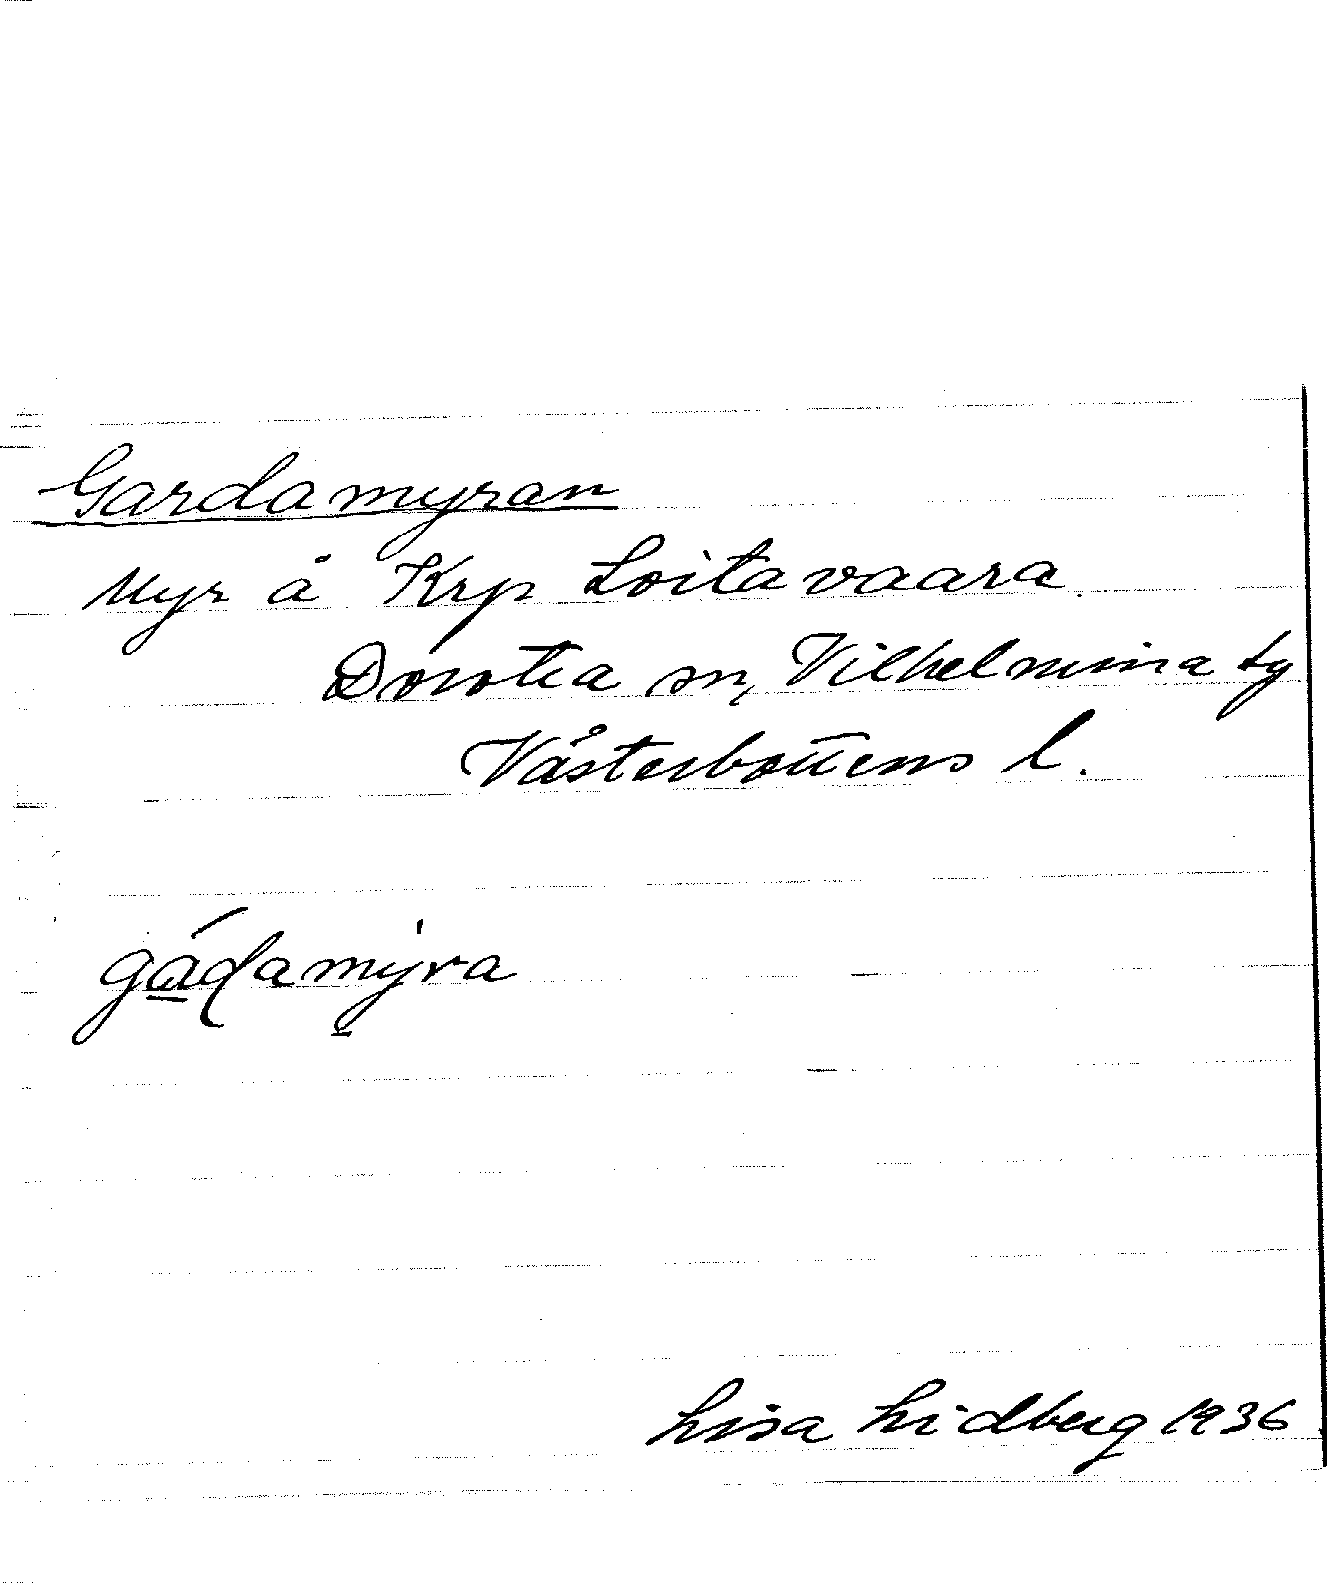 Gardamyran
Myr å Krp Loitavaara.
Dorotea sn, Vilhelmina tg
Västerbottens l.
gádamyra
Lisa Lidberg 1936